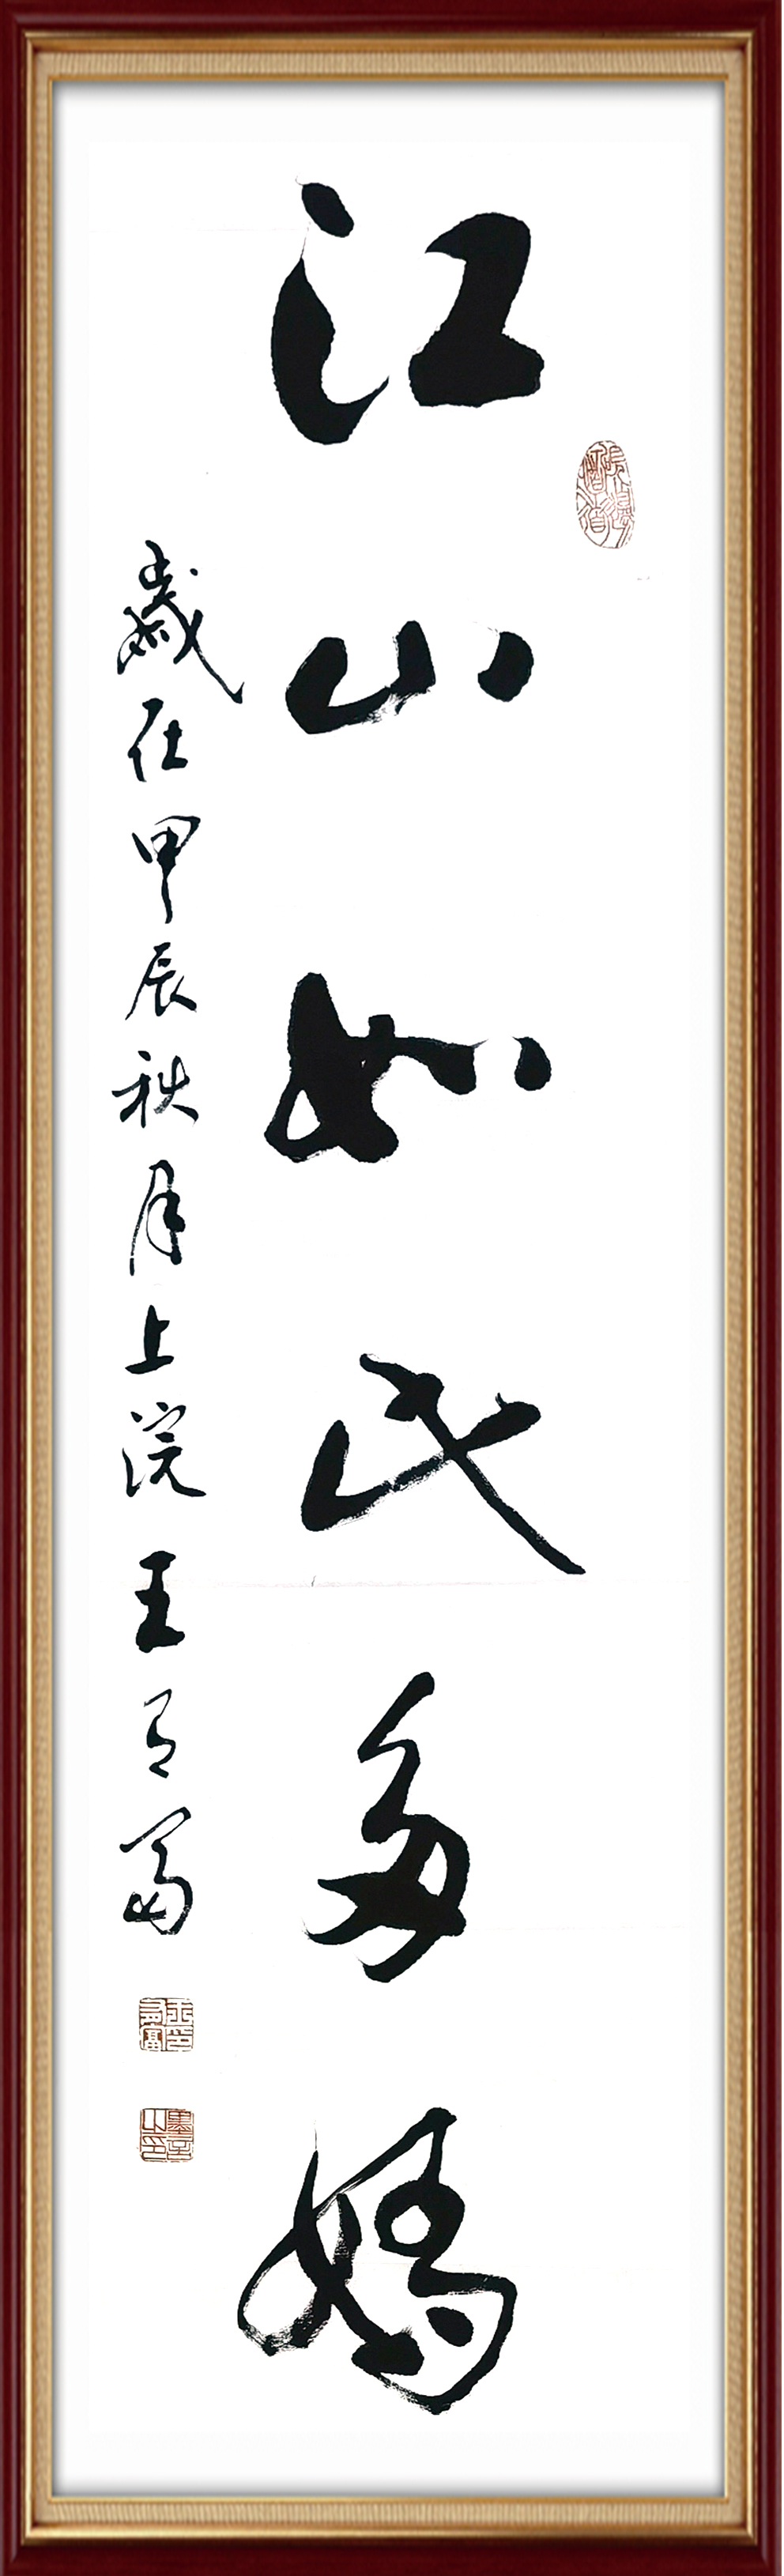 江山如此多嬌
歲在甲辰秋月上浣王有富